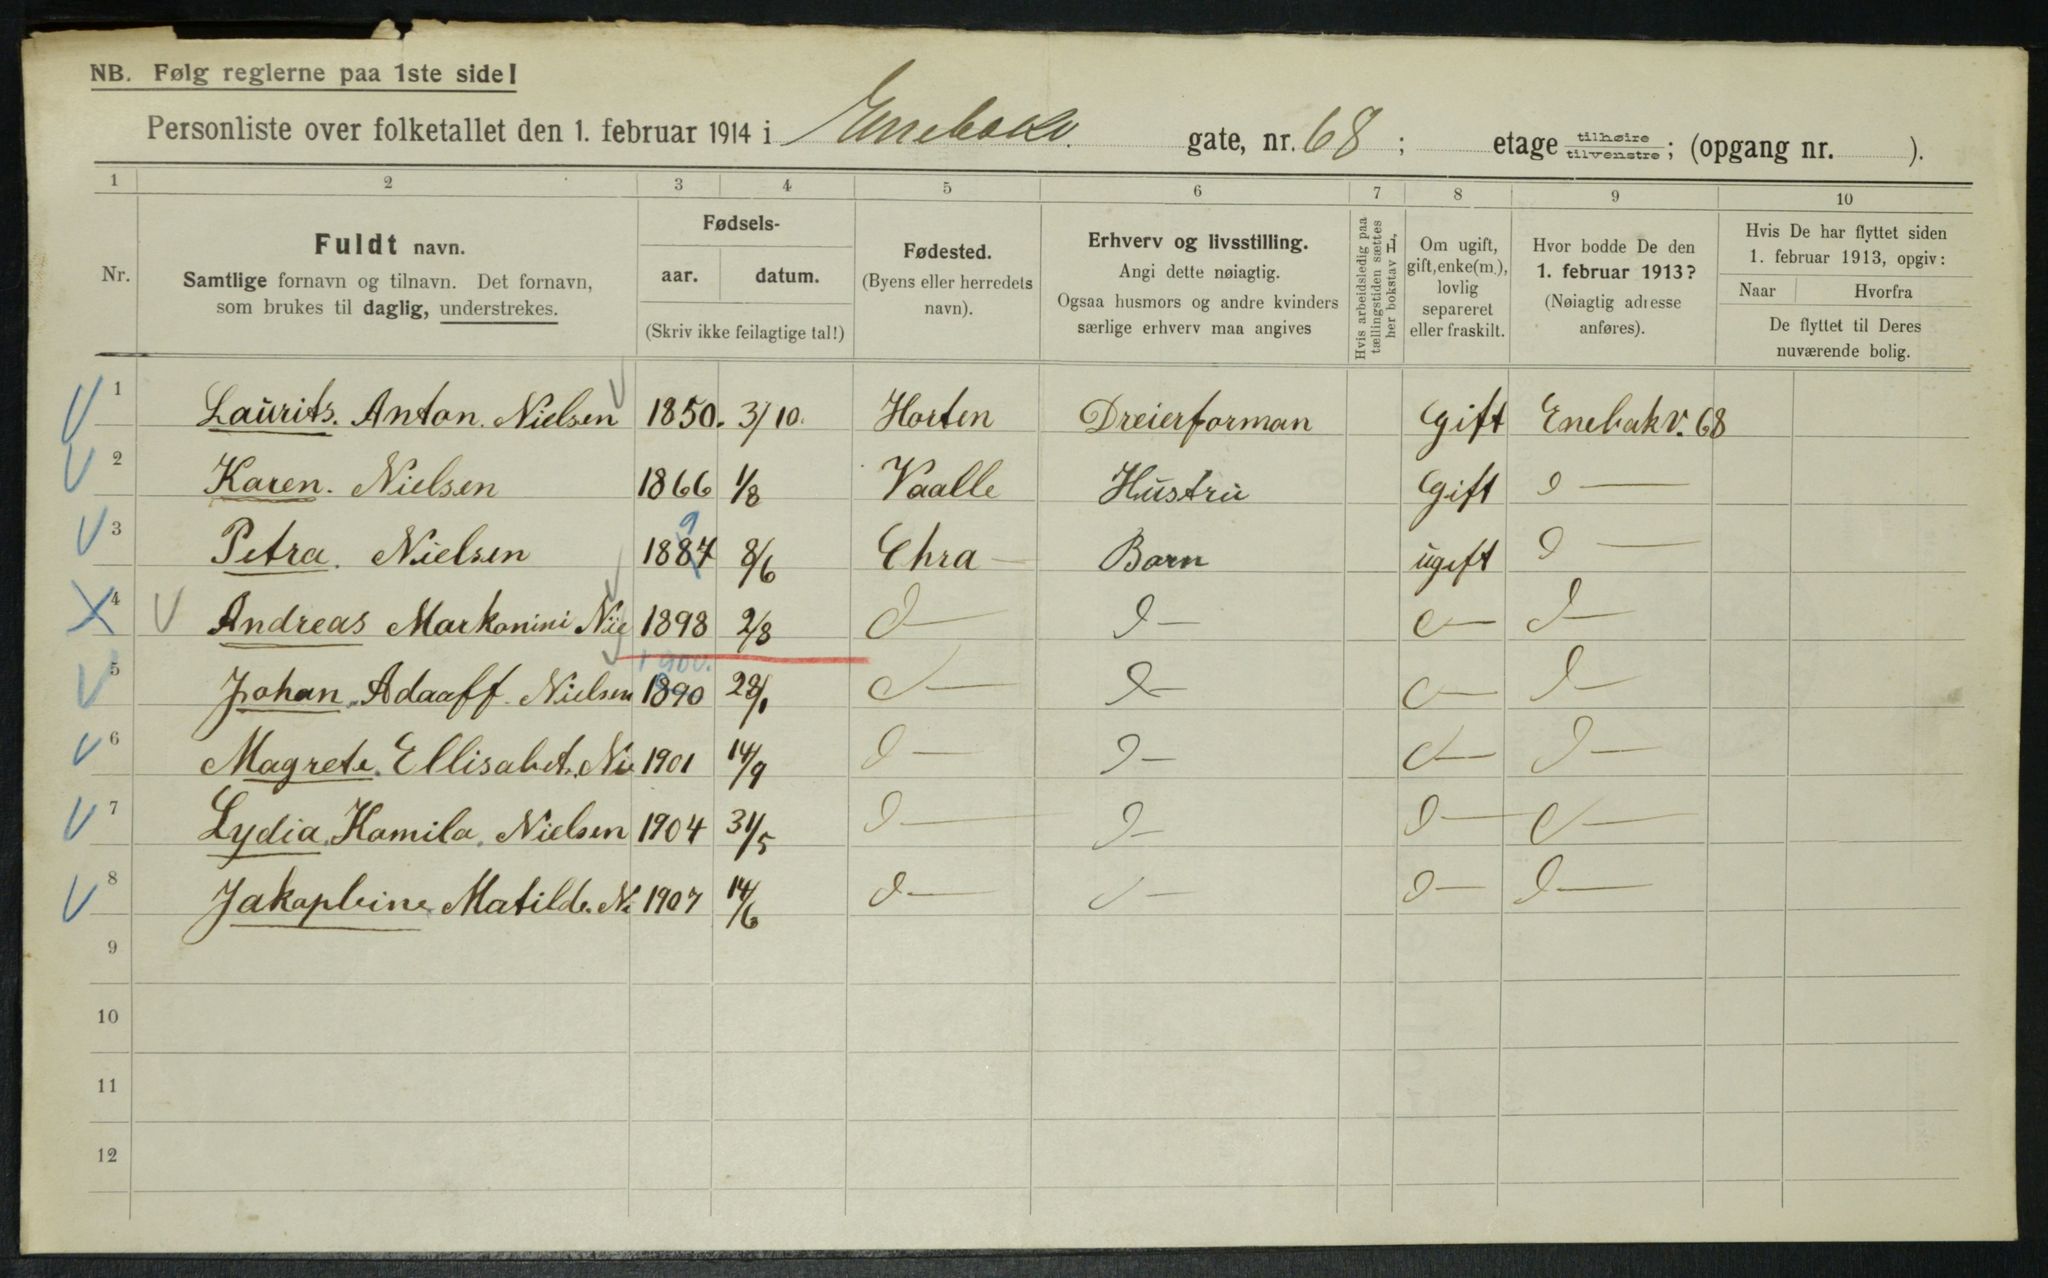 NB. Følg reglerne paa 1ste side!
Personliste over folketallet den 1. februar 1914 i Enebakv. gate, nr. 68 ; etage tilhøire tilvenstre ; (opgang nr. ).
1 2 3 4 5 6 7 8 9 10
Nr.
Fuldt navn.
Samtlige fornavn og tilnavn. Det fornavn,
som brukes til daglig, understrekes.
Fødsels-
aar. datum.
(Skriv ikke feilagtige tal!)
Fødested.
(Byens eller herredets
navn).
Erhverv og livsstilling.
Angi dette nøiagtig.
Ogsaa husmors og andre kvinders
særlige erhverv maa angives
Hvis arbeidsledig paa
tællingstiden sættes
her bokstav L,
Om ugift,
gift, enke(m.),
lovlig
separeret
eller fraskilt.
Hvor bodde De den
1. februar 1913?
(Nøiagtig adresse
anføres).
Hvis De har flyttet siden
1. februar 1913, opgiv:
Naar Hvorfra
De flyttet til Deres
nuværende bolig.
1 Laurits. Anton. Nielsen 1850. 3/10. Horten Dreierforman Gift Enebakv. 68
2 Karen. Nielsen 1866 1/8 Vaalle Hustru Gift D —
9
3 Petra. Nielsen 1884 8/6 Chra — Barn ugift D —
4 Andreas Markonini Nie 1898 2/8 D — D — D — D —
1900.
5 Johan. Adaaff. Nielsen 1890 28/1 D — D — D — D —
6 Magrete. Ellisabet. Ni 1901 14/9 D — D — D — D —
7 Lydia. Kamila. Nielsen 1904 31/5 D — D — D — D —
8 Jakapleine. Matilde. Ni 1907 14/6 D — D — D — D —
9
10
11
12